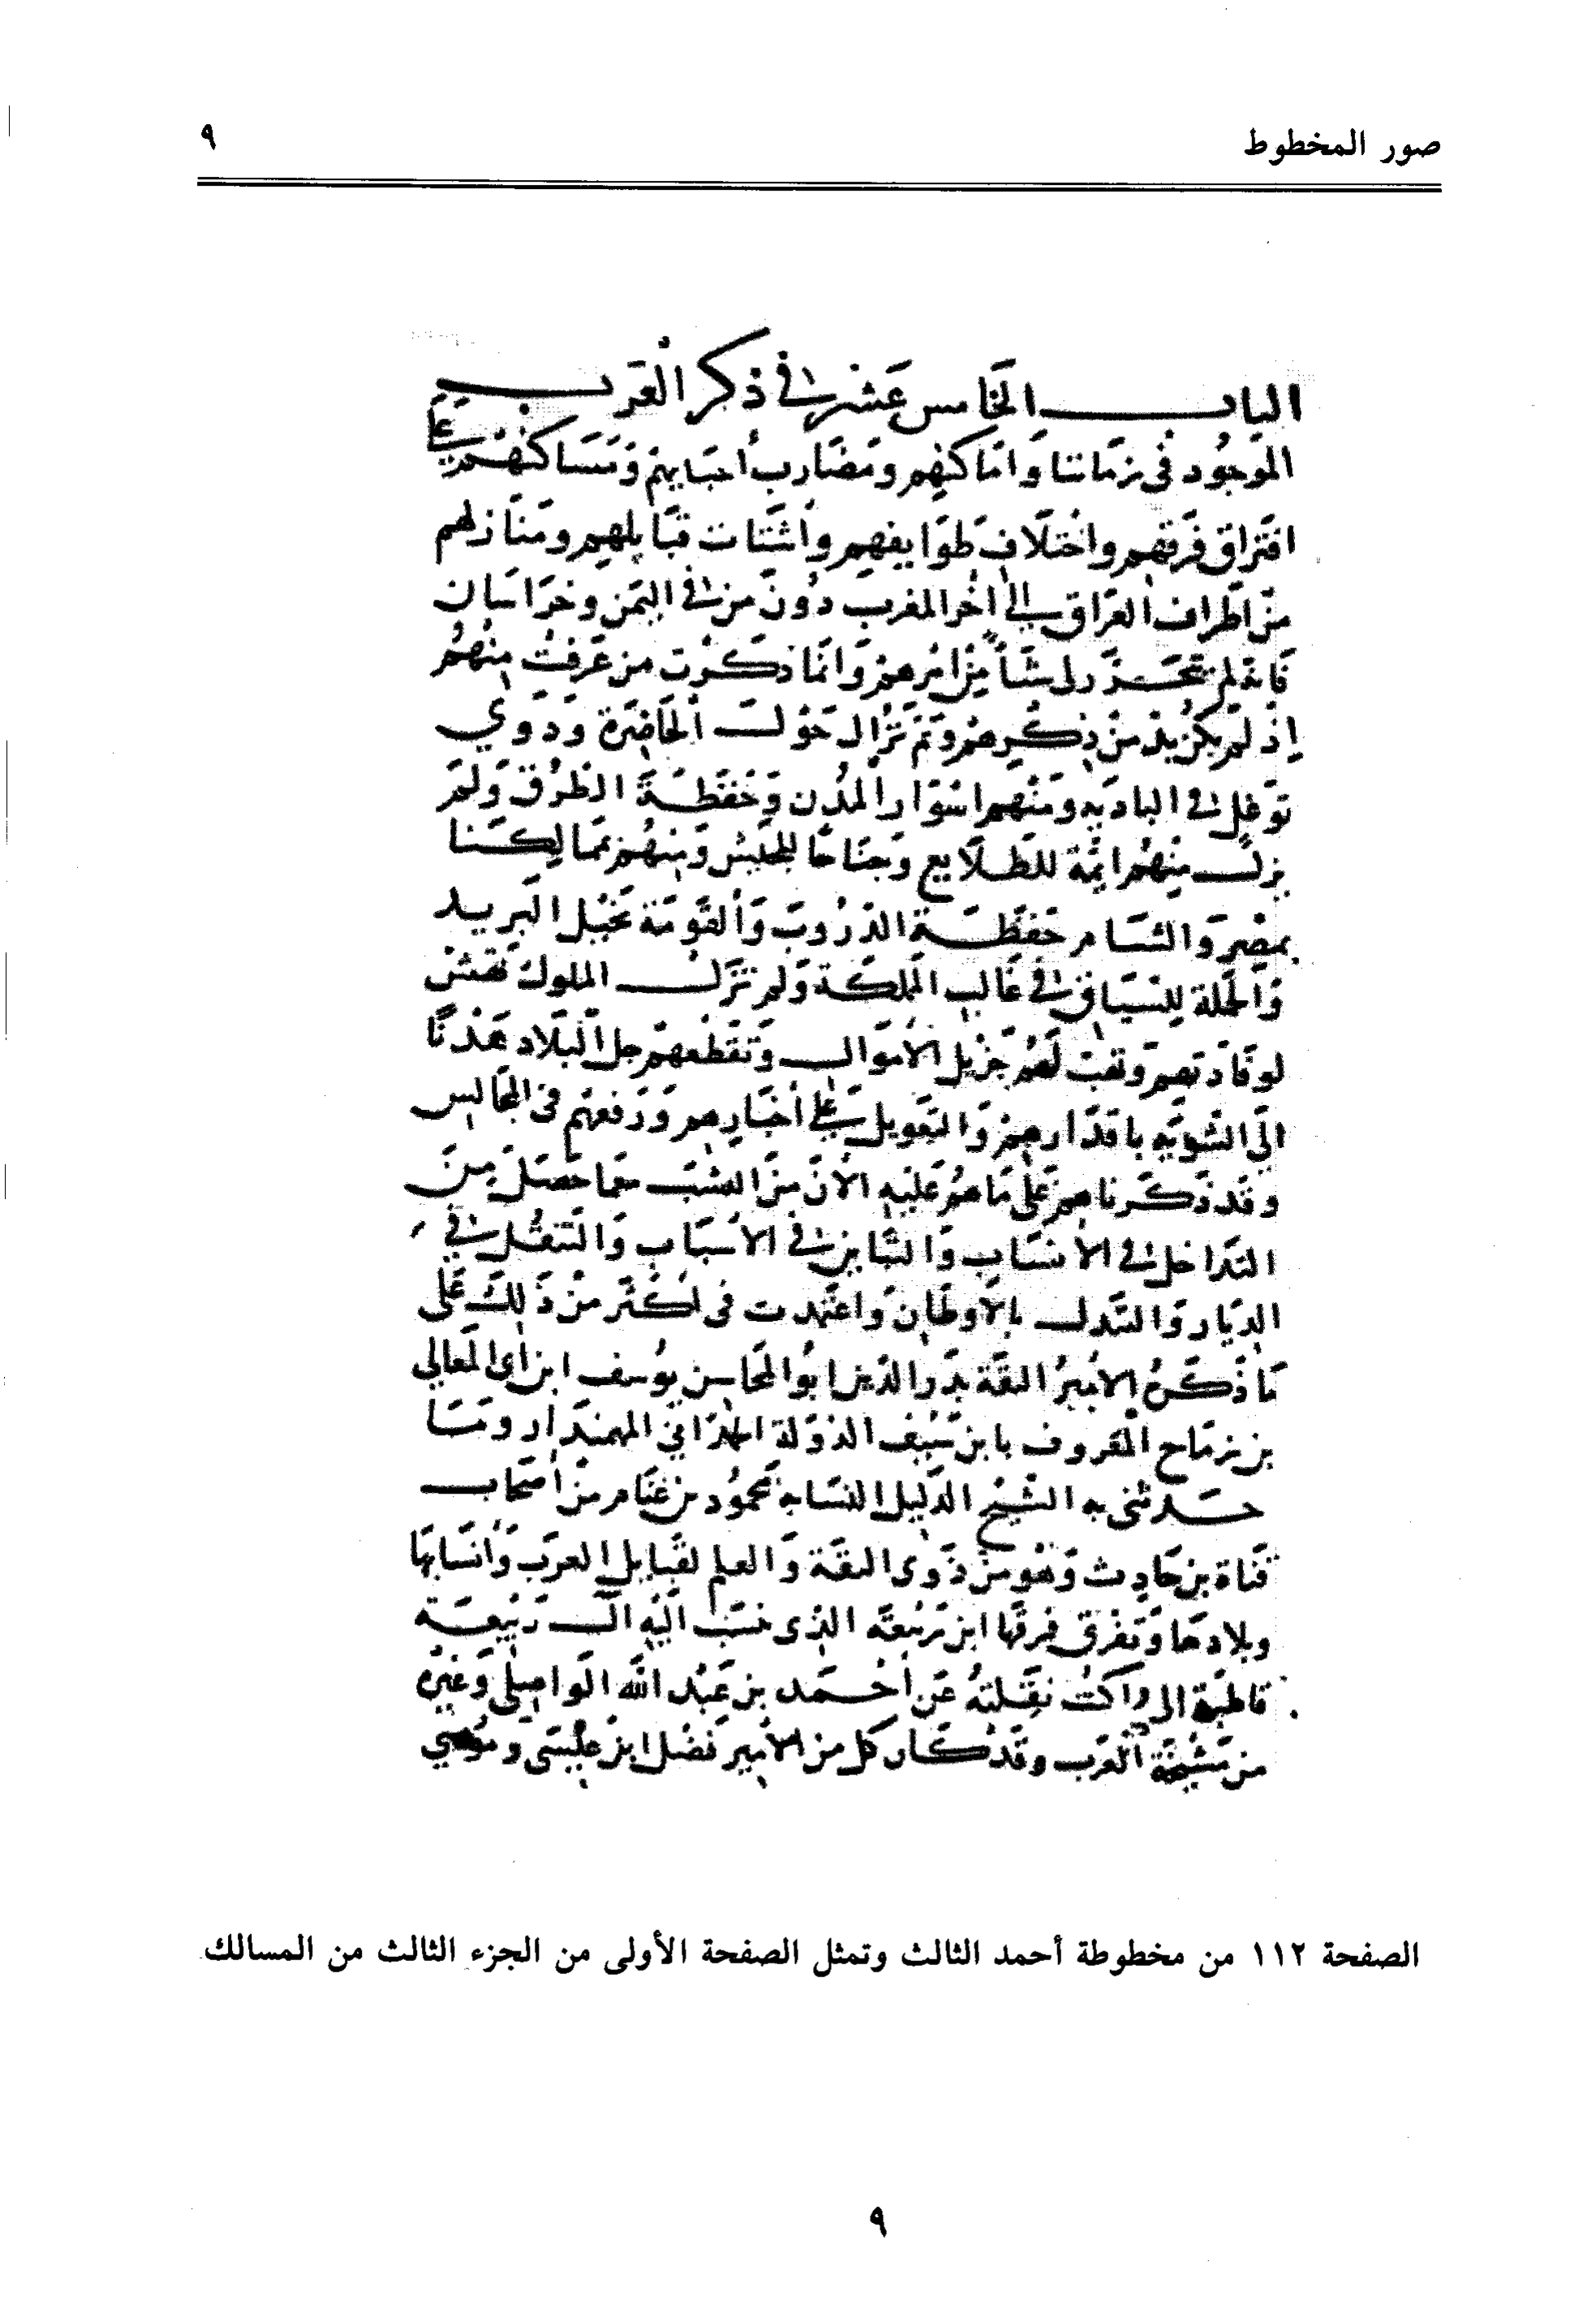 صور المخطوط
٩
الباب الخامس عشر في ذكر العرب
الموجود في زماننا واماكنهم ومضارب احيايهم ومساكنهم على
افتراق فرقهم واختلاف طوايفهم واشتات قبايلهم ومنازلهم
من اطراف العراق الى اخر المغرب دون من في اليمن وخراسان
فانه لم يتحرر لى شأ من امرهم وانما ذكرت من عرفت منهم
اذ لم يكن بد من ذكرهم ولم تزال حول الحاضرة وذوي
توغل في البادية ومنهم اسوار المدن وحفظة الطرق ولم
يزل منهم ايمة للطلايع وجناحا للجيش ومنهم بممالكنا
بمصر والشام حفظة الدروب والقومة بخيل البريد
والحملة للسياق في غالب المملكة ولم تزل الملوك تهش
لوفادتهم وتهب لهم جزيل الأموال وتقطعهم جل البلاد هذا
الى التنويه باقدارهم والتعويل على أخبارهم ورفعهم في المجالس
وقد ذكرناهم على ما هم عليه الآن من النسب مما حصل من
التداخل في الأنساب والتباين في الأسباب والتنقل في
الديار والتبدل بالأوطان واعتمدت فى أكثر من ذلك على
ما ذكره الأمير الثقة بدر الدين ابو المحاسن يوسف ابن ابي المعالي
بن زماح المعروف بابن سيف الدولة الحمداني المهمندار ومما
حدثنى به الشيخ الدليل النسابة محمود بن غنام من أصحاب
قناة بن حارث وهو من ذوى الثقة والعلم لقبايل العرب وأنسابها
وبلادها وتفرق فرقها ابن ربيعة الذى نسب اليه آل ربيعة
قاطبة الى نقلته عن أحمد بن عبد الله الواصلى وغيره
من مشيخة العرب وقد كان كل من الأمير فضل ابن عيسى وموسي
الصفحة ١١٢ من مخطوطة أحمد الثالث وتمثل الصفحة الأولى من الجزء الثالث من المسالك
٩